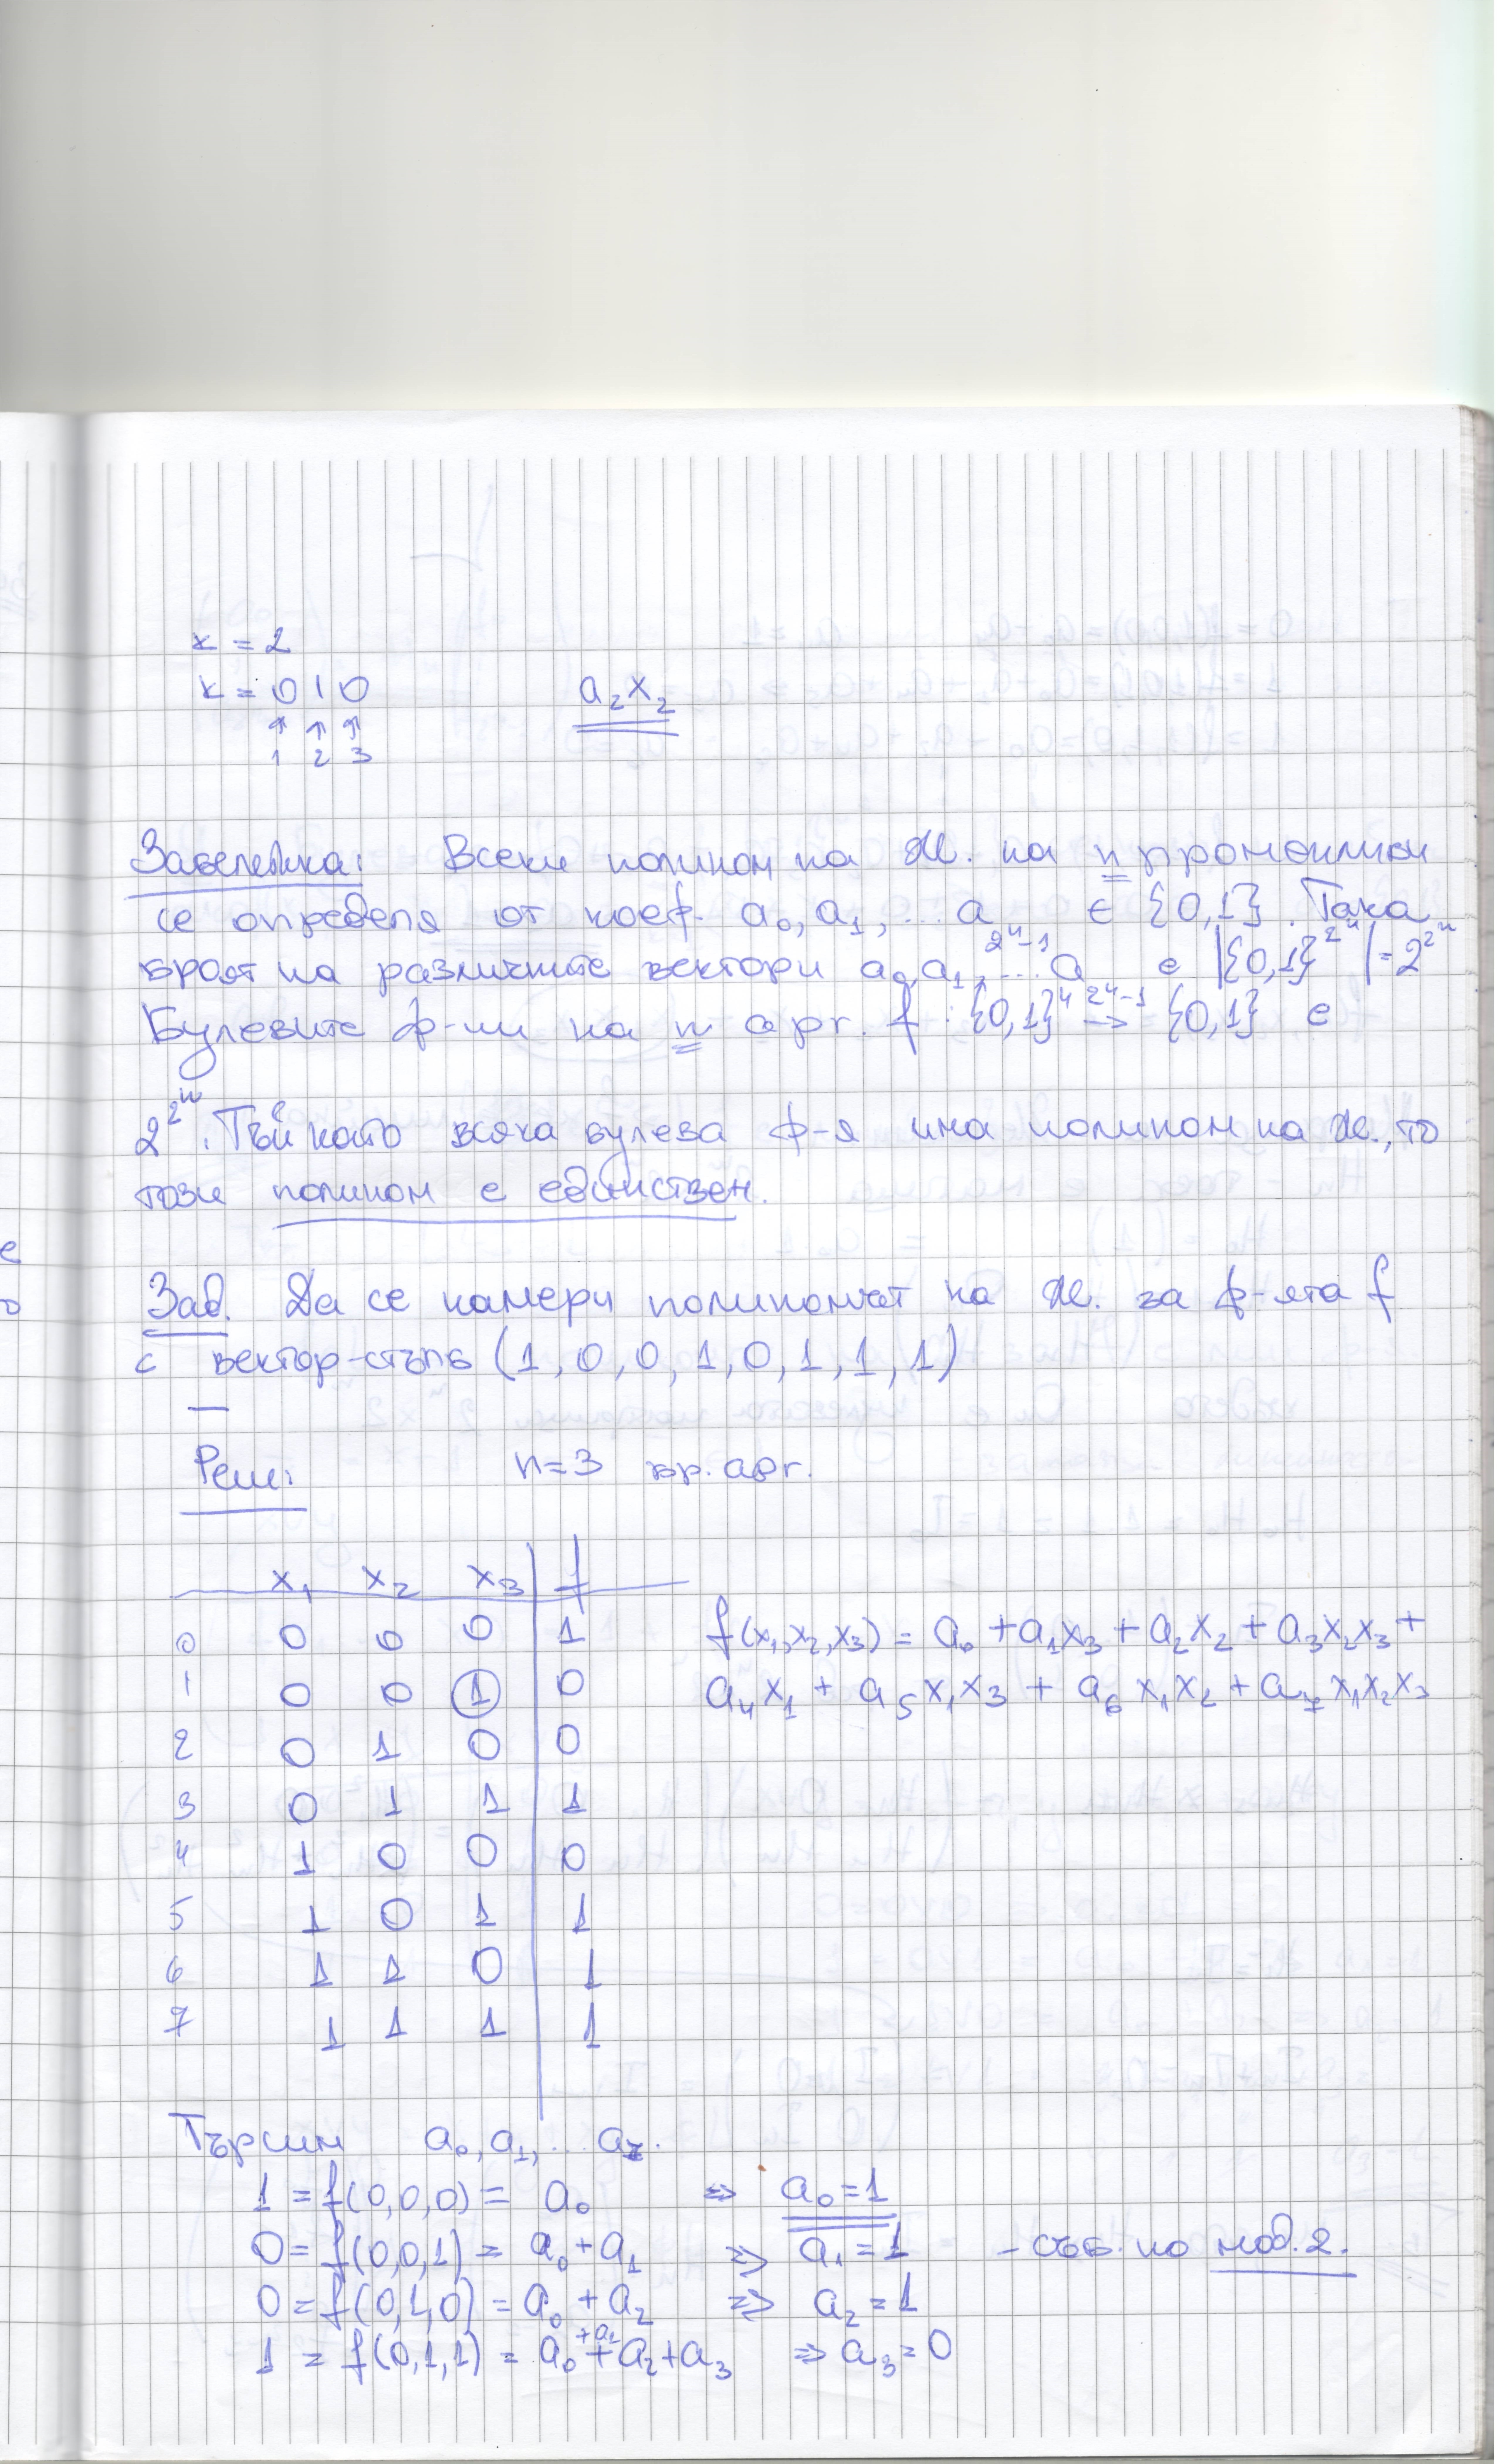 к = 2
к = 0 1 0        a₂x₂
↑ ↑ ↑
1 2 3
Забележка: Всеки полином на Ж. на n променливи
се определя от коеф. a₀, a₁, ... a_{2ⁿ-1} ∈ {0,1}. Така
броят на различните вектори a₀, a₁, ... a_{2ⁿ-1} е |{0,1}^{2ⁿ}| = 2^{2ⁿ}
Булевите ф-ии на n арг. f : {0,1}ⁿ → {0,1} е
2^{2ⁿ}. Тъй като всяка булева ф-я има полином на Ж., то
този полином е единствен.
Зад. Да се намери полиномът на Ж. за ф-ята f
с вектор-стълб (1, 0, 0, 1, 0, 1, 1, 1)
Реш: n=3 бр. арг.
x₁ x₂ x₃ f
0 0 0 0 1 f(x₁,x₂,x₃) = a₀ + a₁x₃ + a₂x₂ + a₃x₂x₃ +
1 0 0 1 0 a₄x₁ + a₅x₁x₃ + a₆x₁x₂ + a₇x₁x₂x₃
2 0 1 0 0
3 0 1 1 1
4 1 0 0 0
5 1 0 1 1
6 1 1 0 1
7 1 1 1 1
Търсим a₀, a₁, ... a₇.
1 = f(0,0,0) = a₀ ⇒ a₀=1
0 = f(0,0,1) = a₀+a₁ ⇒ a₁=1 - съб. по мод. 2.
0 = f(0,1,0) = a₀+a₂ ⇒ a₂=1
1 = f(0,1,1) = a₀+a₁+a₂+a₃ ⇒ a₃=0